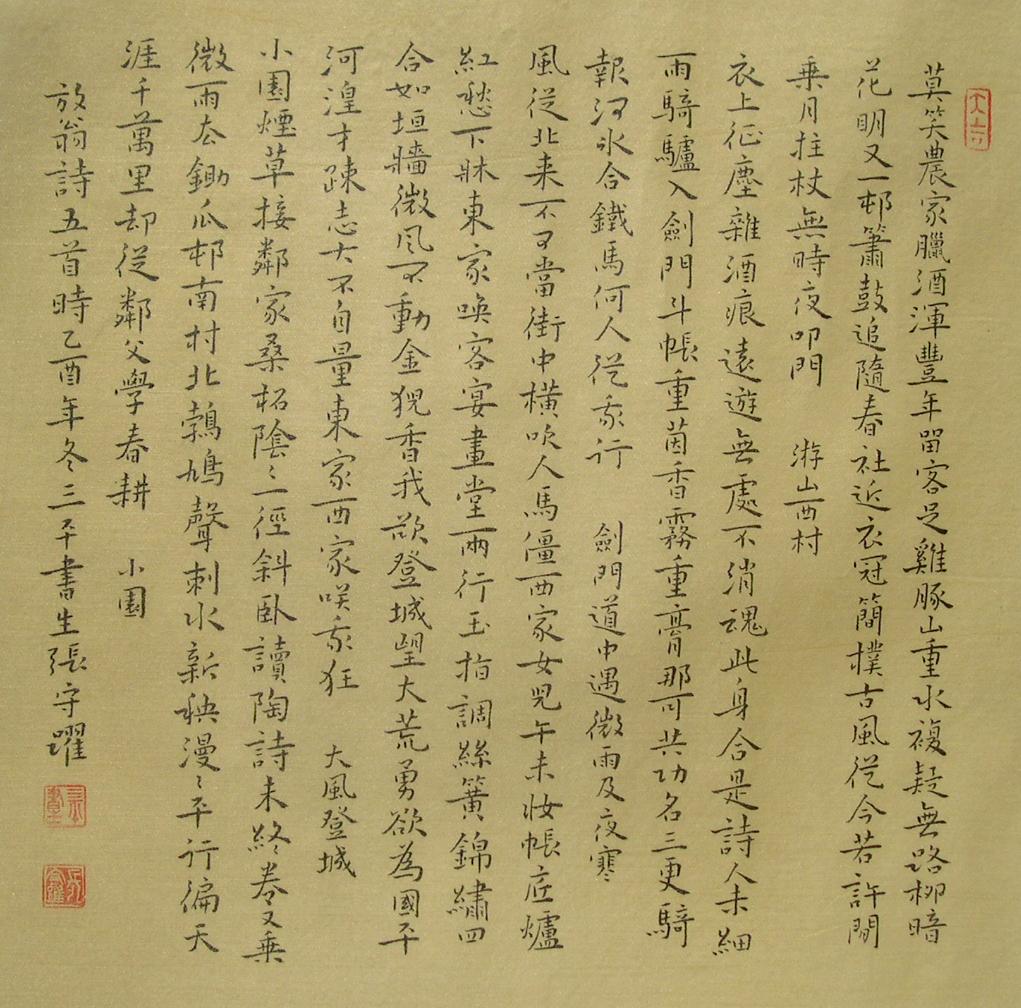 莫笑農家臘酒渾豐年留客足雞豚山重水複疑無路柳暗
花明又一邨簫鼓追隨春社近衣冠簡樸古風從今若許閒
乗月拄杖無時夜叩門 游山西村
衣上征塵雜酒痕遠遊無處不消魂此身合是詩人未細
雨騎驢入劍門斗帳重茵香霧重膏那可共功名三更騎
報河氷合鐵馬何人從我行 劍門道中遇微雨及夜寒
風從北来不可當街中橫吹人馬僵西家女兒午未妝帳底爐
紅愁下牀東家喚客宴畫堂兩行玉指調絲簧錦繡四
合如垣牆微風不動金猊香我欲登城望大荒勇欲為國平
河湟才疎志大不自量東家西家咲我狂 大風登城
小園煙草接鄰家桑柘陰〻一徑斜臥讀陶詩未終卷又乗
微雨去鋤瓜邨南村北鵓鳩聲刺水新秧漫〻平行徧天
涯千萬里却從鄰父學春耕 小園
放翁詩五首時乙酉年冬三平書生張守躍